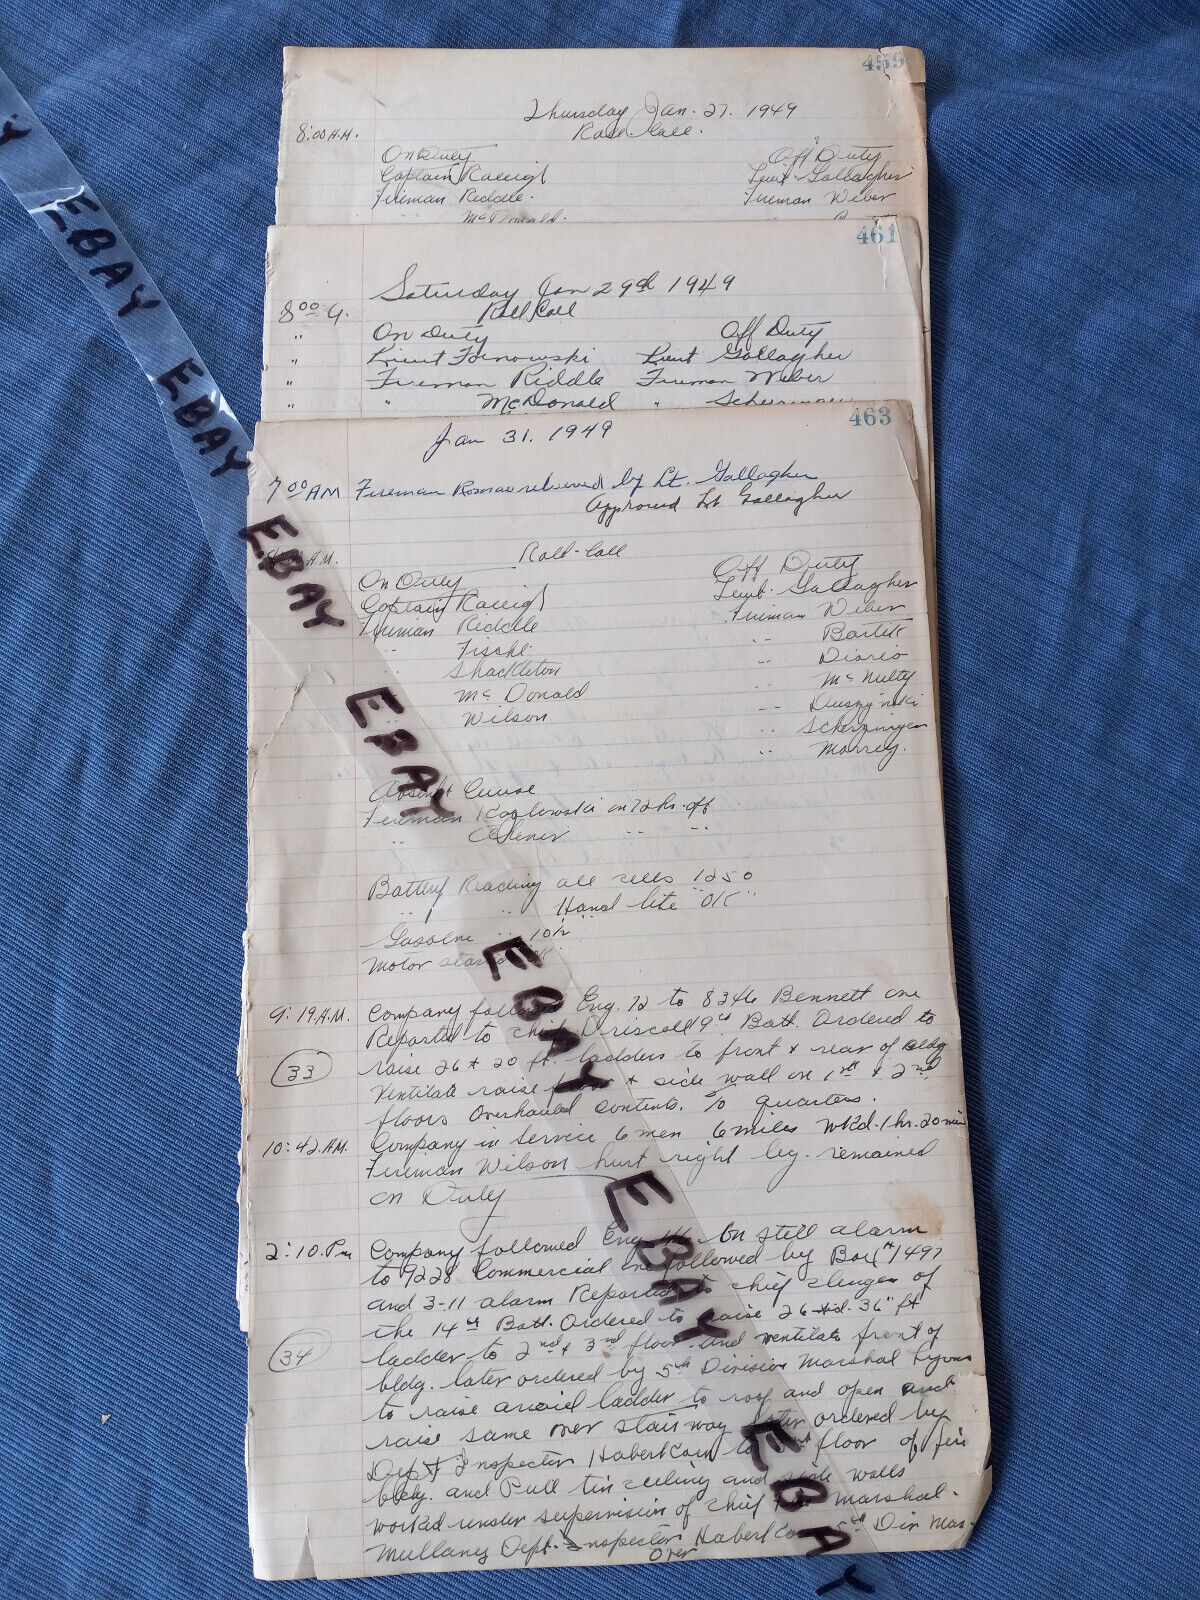 459
Thursday Jan. 27. 1949
8:00 A.M. Roll Call.
On Duty Off Duty
Captain Raleigh Lieut. Gallagher
Fireman Riddle. Fireman Weber
" " McDonald.
461
Saturday Jan 29th 1949
8:00 A. Roll Call
" On Duty Off Duty
" Lieut Lieut Gallagher
" Fireman Riddle Fireman Weber
" " McDonald "
463
Jan 31. 1949
7:00 AM Fireman relieved by Lt. Gallagher
Approved Lt Gallagher
A.M. Roll-Call
On Duty Off Duty
Captain Raleigh Lieut. Gallagher
Fireman Riddle Fireman Weber
" Fischl " Bartik
" Shackleton " Diorio
" McDonald " McNulty
" Wilson " Duszynski
" Scherzinger
" Morrey.
Absent Cause
Fireman Kozlowski on 72 hr. off
" " "
Battery Reading all cells 1250
" " Hand lite "OK"
Gasoline " 10 1/2"
Motor
9:19 A.M. Company Eng. 72 to 8346 Bennett ave
Reported to Chief Driscoll 19th Batt. Ordered to
raise 26 & 20 ft. ladders to front & rear of Bldg
33
Ventilate raise floor & side wall on 1st & 2nd
floors Overhauled Contents. To quarters.
10:42 A.M. Company in Service 6 men 6 miles Wkd. 1 hr. 20 min
Fireman Wilson hurt right leg. remained
on Duty
2:10. Pm Company followed Eng 46 on still alarm
to 9228 Commercial ave followed by Box # 1497
and 3-11 alarm Reported to Chief of
the 14th Batt. Ordered to raise 26 36" ft
34
ladder to 2nd & 3rd floor and ventilate front of
bldg. later ordered by 5th Division Marshal Lyons
to raise ladder to roof and open and
raise same over stairway later ordered by
Dept Inspector Haberkorn to floor of
bldg. and Pull tin ceiling and side walls
worked under supervision of chief Fire Marshal.
Mullaney Dept. Inspector Haberkorn 5th Div Mar-
over
EBAY
EBAY
EBAY
EBAY
EBAY
EBAY
EBAY